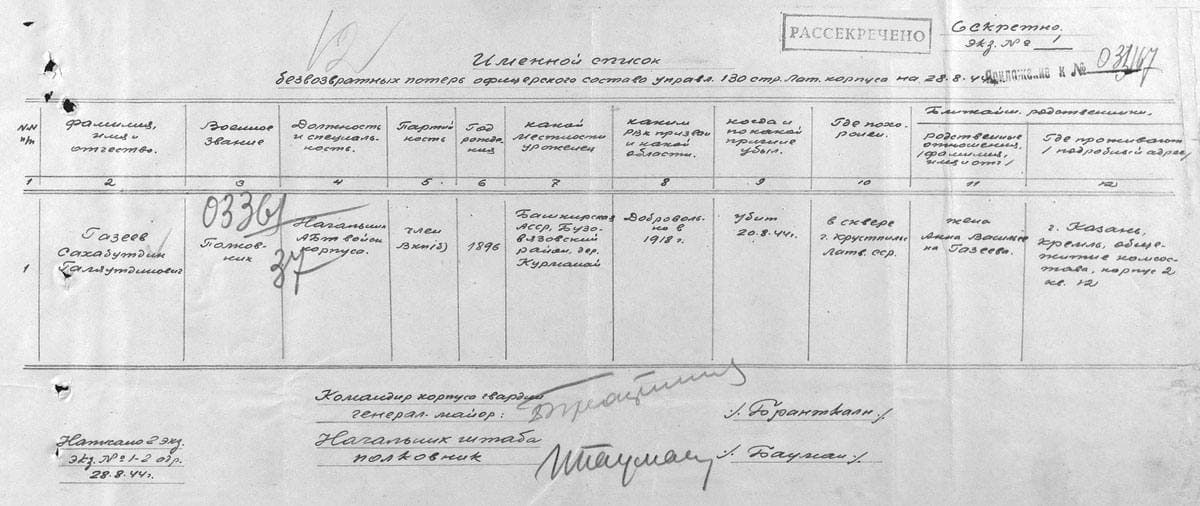 РАССЕКРЕЧЕНО
Секретно.
Экз. № 1
Приложение к №
Именной список
безвозвратных потерь офицерского состава управл. 130 стр. Лат. корпуса на 28.8.44г.
№№ п/п
Фамилия, имя и отчество.
Военное звание
Должность и специальность.
Партийность
Год рождения
какой местности уроженец
каким РВК призван и какой области.
когда и по какой причине убыл.
Где похорон.
Ближайш. родственники.
родственные отношения, /фамилия, имя и отч/
Где проживают / подробный адрес/
1 2 3 4 5. 6 7 8 9 10 11 12
1
Газеев
Сахабутдин
Галяутдинович
0336/
37
Полковник
Начальник
АБТ войск
корпуса.
член
ВКП(б)
1896
Башкирская
АССР, Бузо-
вязовский
район, дер.
Курманай
Доброволь-
но в
1918 г.
убит
20.8.44г.
в сквере
г. Крустпилс
Латв. ССР.
жена
Анна
на Газеева.
г. Казань,
Кремль, обще-
житие комсос-
тава, корпус 2
кв. 12
Командир корпуса гвардии
генерал-майор:
/. Бранткалн./
Начальник штаба
полковник
/. Бауман./
2 экз.
экз. №1-2 адр.
28.8.44г.